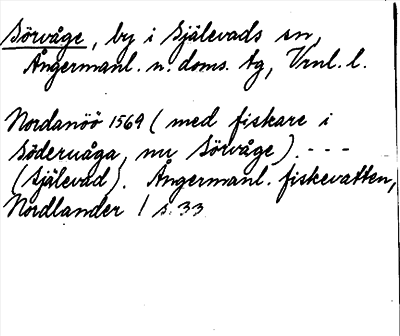 Sörvåge, by i Själevads sn,
Ångermanl. n. doms. tg, Vrnl. l.
Nordanöö 1569 (med fiskare i
Södernåga, nu Sörvåge). ---
(Själevad). Ångermanl. fiskevatten,
Nordlander / s. 33